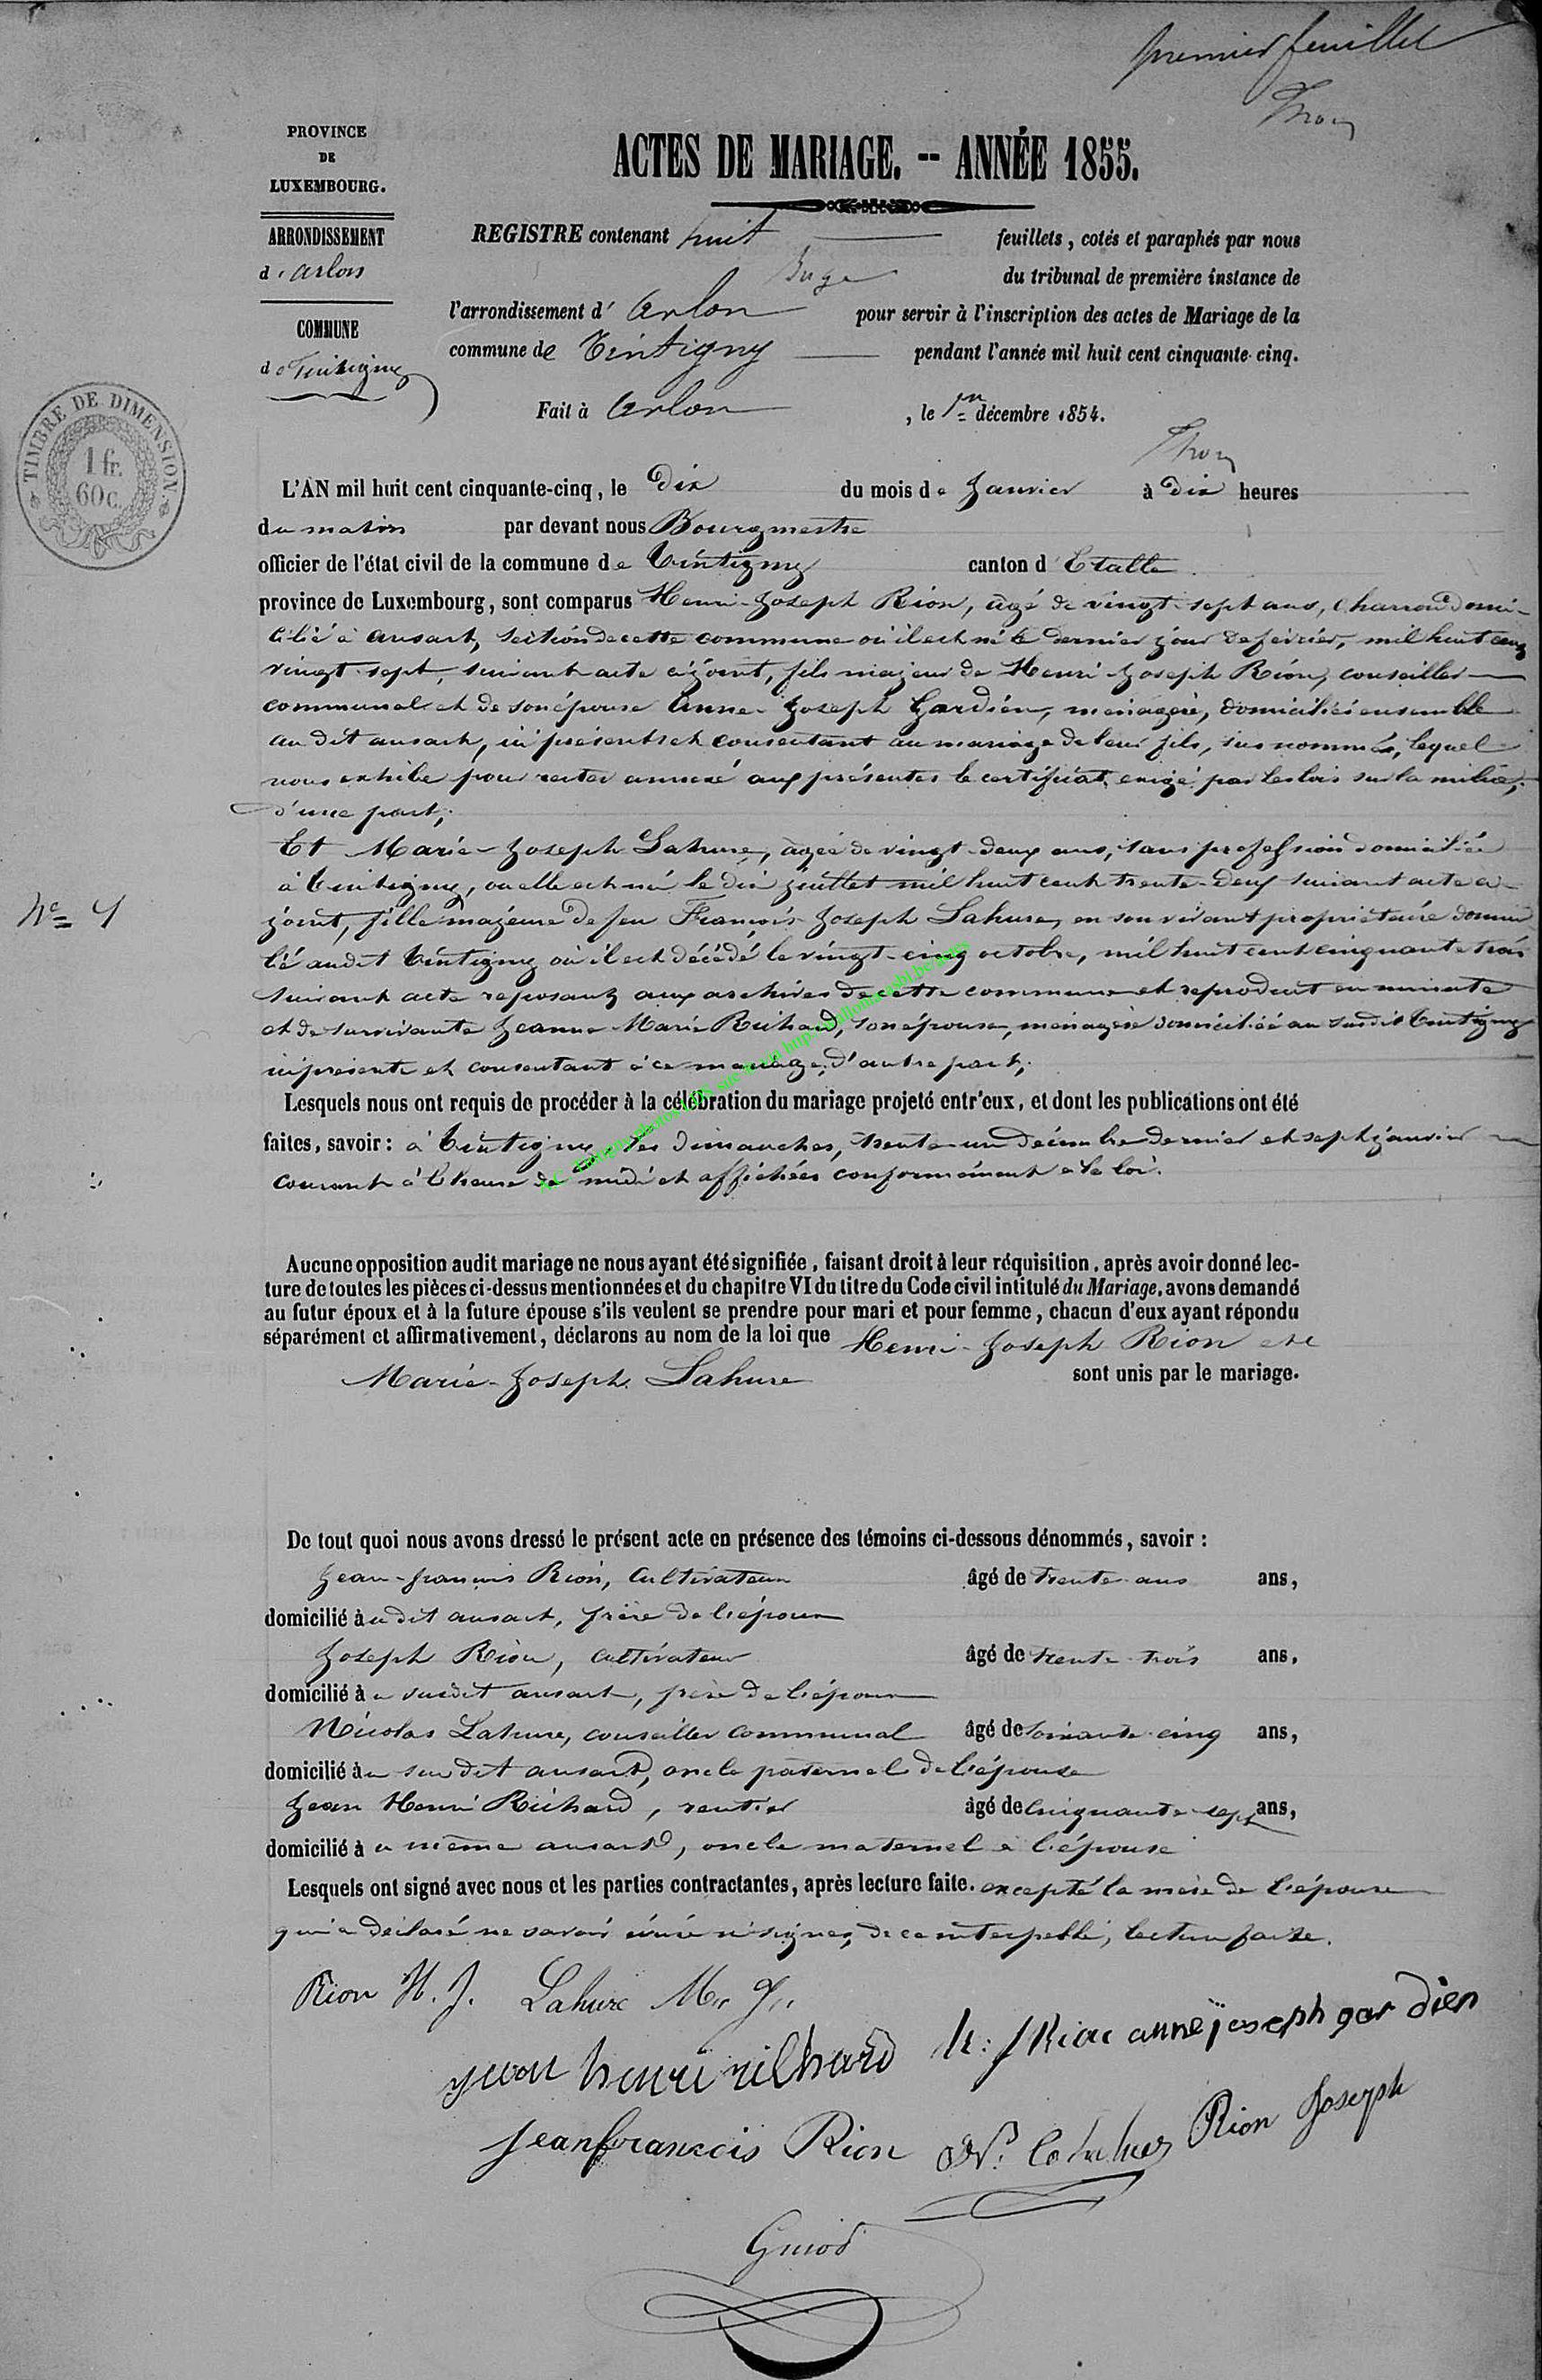 premier feuillet
PROVINCE
DE
LUXEMBOURG.
ACTES DE MARIAGE. -- ANNÉE 1855.
ARRONDISSEMENT
d'Arlon
REGISTRE contenant huit feuillets, cotés et paraphés par nous
Juge du tribunal de première instance de
l'arrondissement d'Arlon pour servir à l'inscription des actes de Mariage de la
COMMUNE
de Tintigny
commune de Tintigny pendant l'année mil huit cent cinquante-cinq.
Fait à Arlon, le 1er décembre 1854.
TIMBRE DE DIMENSION.
1 fr.
60 c.
L'AN mil huit cent cinquante-cinq, le dix du mois de Janvier à dix heures
du matin par devant nous Bourgmestre
officier de l'état civil de la commune de Tintigny canton d'Etalle
province de Luxembourg, sont comparus Henri-Joseph Rion, âgé de vingt-sept ans, charron domi-
cilié à ansart, section de cette commune où il est né le dernier jour de février, mil huit cent
vingt-sept, suivant acte cijoint, fils majeur de Henri-Joseph Rion, conseiller
communal et de son épouse Anne-Joseph Gardien, ménagère, domiciliés ensemble
au dit ansart, ici présents et consentant au mariage de leur fils, sus nommé, lequel
nous exhibe pour rester annexé aux présentes le certificat exigé par les lois sur la milice,
d'une part,
Et Marie-Joseph Lahure, âgée de vingt-deux ans, sans profession domiciliée
à Tintigny, où elle est née le dix juillet mil huit cent trente-deux suivant acte ci-
N° 1
joint, fille majeure de feu François-Joseph Lahure, en son vivant propriétaire domici
lié audit Tintigny où il est décédé le vingt-cinq octobre, mil huit cent cinquante trois
suivant acte reposant aux archives de cette commune et reproduit en minute
et de survivante Jeanne-Marie Richard, son épouse, ménagère domiciliée au susdit Tintigny
ici présente et consentant à ce mariage, d'autre part,
Lesquels nous ont requis de procéder à la célébration du mariage projeté entr'eux, et dont les publications ont été
faites, savoir: à Tintigny les dimanches, trente-un décembre dernier et sept janvier
courant à l'heure de midi et affichées conformément à la loi.
Aucune opposition audit mariage ne nous ayant été signifiée, faisant droit à leur réquisition, après avoir donné lec-
ture de toutes les pièces ci-dessus mentionnées et du chapitre VI du titre du Code civil intitulé du Mariage, avons demandé
au futur époux et à la future épouse s'ils veulent se prendre pour mari et pour femme, chacun d'eux ayant répondu
séparément et affirmativement, déclarons au nom de la loi que Henri-Joseph Rion et
Marie-Joseph Lahure sont unis par le mariage.
De tout quoi nous avons dressé le présent acte en présence des témoins ci-dessous dénommés, savoir:
Jean-françois Rion, Cultivateur âgé de trente ans ans,
domicilié au dit ansart, frère de l'époux
Joseph Rion, cultivateur âgé de trente-trois ans,
domicilié au susdit ansart, frère de l'époux
Nicolas Lahure, conseiller communal âgé de soixante-cinq ans,
domicilié au susdit ansart, oncle paternel de l'épouse
Jean Henri Richard, rentier âgé de cinquante-sept ans,
domicilié à u même ansart, oncle maternel à l'épouse
Lesquels ont signé avec nous et les parties contractantes, après lecture faite. excepté la mère de l'épouse
qui a déclaré ne savoir écrire ni signer, de ce interpellé, lecture faite.
Rion H. J. Lahure M. J.
jean henri richard h: j Rion anne joseph gardien
jean francois Rion N. Lahure Rion Joseph
Guiod